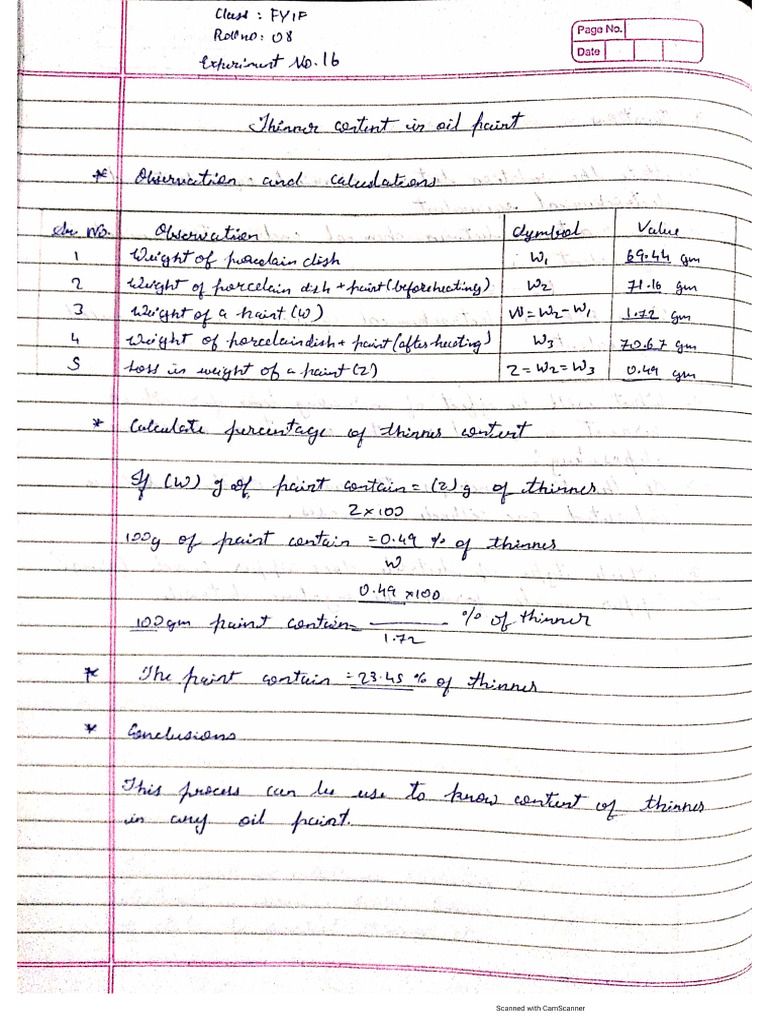 Class : FYIF
Roll no: 08
Experiment No. 16
Page No.
Date
Thinner content in oil paint
* Observation and calculations
Sr No. Observation Symbol Value
1 Weight of porcelain dish W1 69.44 gm
2 Weight of porcelain dish + paint (before heating) W2 71.16 gm
3 Weight of a paint (W) W = W2 - W1 1.72 gm
4 Weight of porcelain dish + paint (after heating) W3 70.67 gm
5 Loss in weight of a paint (Z) Z = W2 = W3 0.49 gm
* Calculate percentage of thinner content
If (W) g of paint contain = (Z) g of thinner
Z × 100
100g of paint contain = 0.49 % of thinner
W
0.49 × 100
100gm paint contain = % of thinner
1.72
* The paint contain = 23.45 % of thinner
* Conclusions
This process can be use to know content of thinner
in any oil paint.
Scanned with CamScanner